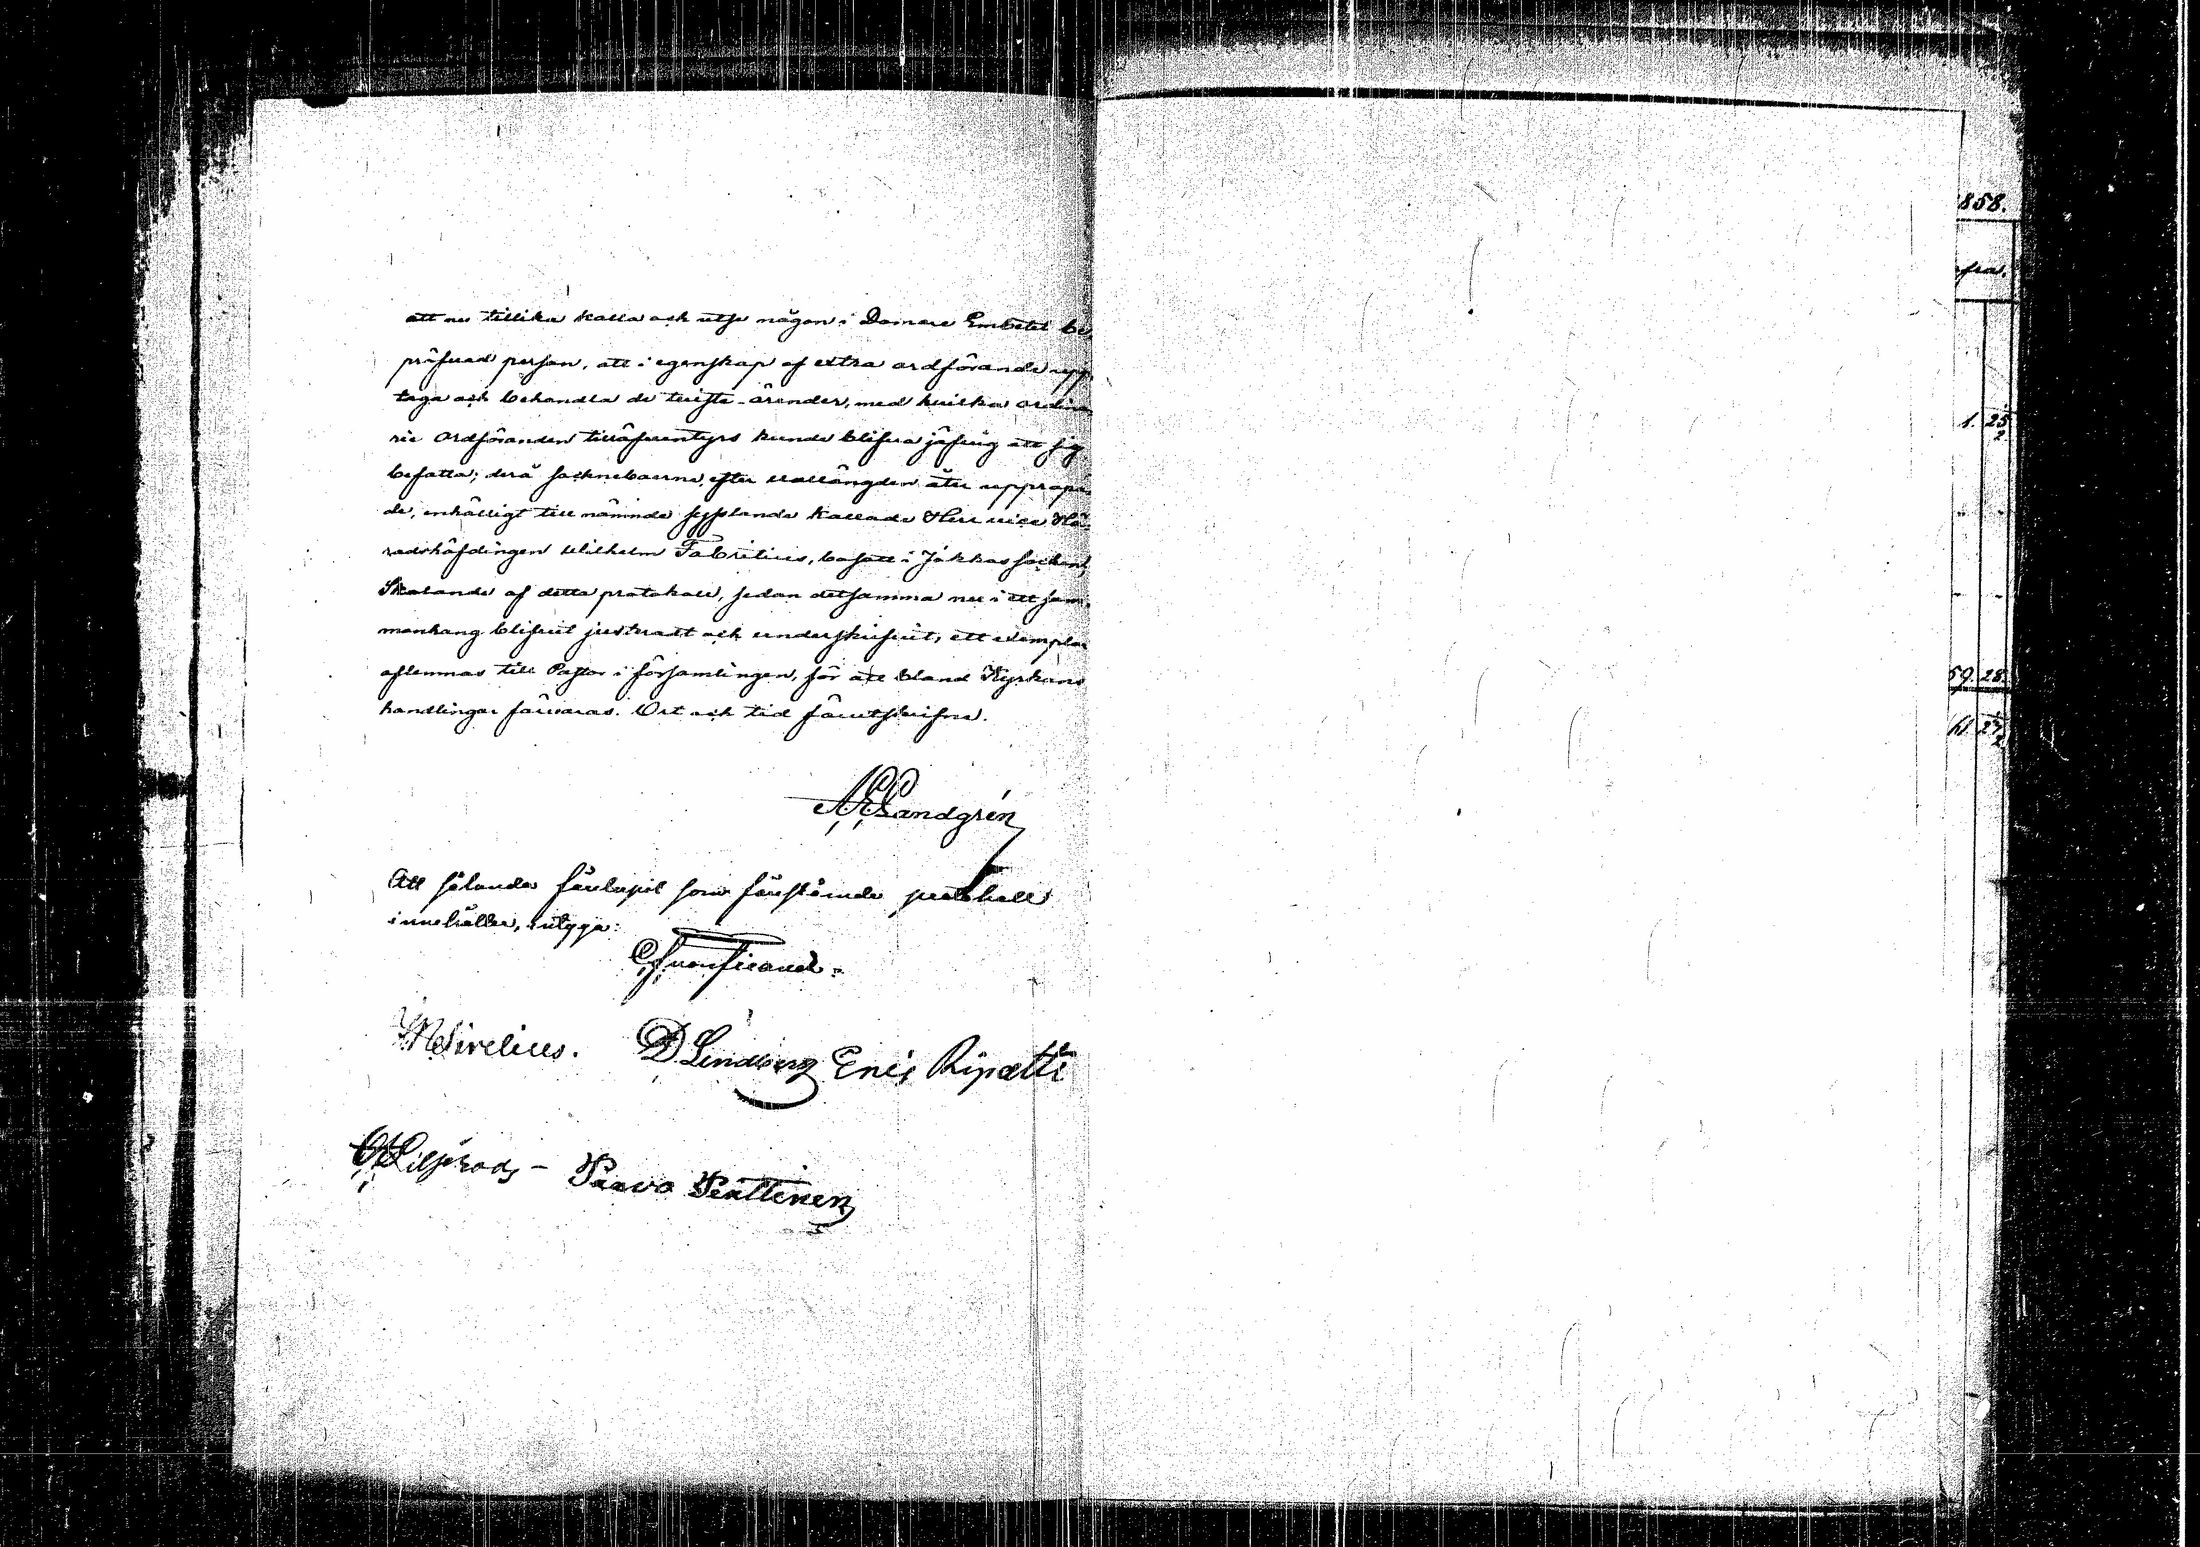 att nu tillika kalla och utse någon i Domare Embetet be
pröfvad person, att i egenskap af extra ordförande upp
taga och behandla de tviste-ärender, med hvilka ordina
rie Ordföranden tilläfventyrs kunde blifva jäfvig att sig
befatta; derå sockneboerne, efter vallängden åter uppropa
de, enhälligt till nämnde syssland kallade Herr vice Hä
radshöfdingen Wilhelm Fabritius, bosatt i Jäkkas Socken,
Skolande af detta protokoll, sedan detsamma nu i ett sam
manhang blifvit justeradt och underskrifvit, ett exemplar
aflemnas till Pastor i församlingen, för att bland Kyrkans
handlingar förvaras. Ort och tid förutskrifne.
Sandgrén
Att sålunda förelupit som förestående protokoll
innehåller, intyga:
Sirelius. D. Lindberg Eneis Ripatti
Paavo Penttinen
858.
1. 25
59. 28.
61 27
2